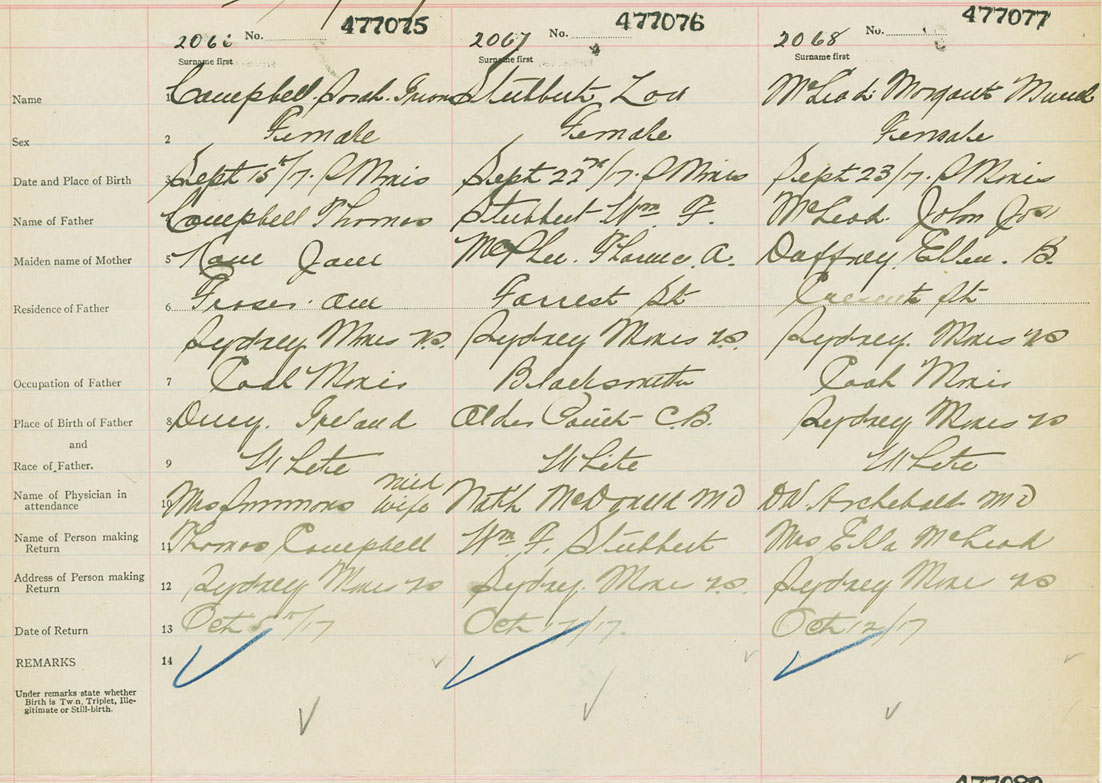 477075 477076 477077
2066 No. 2067 No. 2068 No.
Surname first Surname first Surname first
Name 1 Campbell Sarah Stubbert Lou McLeod Margaret Muriel
Sex 2 Female Female Female
Date and Place of Birth 3 Sept 15th/17. S Mines Sept 22nd/17. S Mines Sept 23/17. S Mines
Name of Father Campbell Thomas Stubbert Wm F. McLeod John Jos
Maiden name of Mother 5 Kane Jane McPhee. Florence A. Duffray Ellen. B.
Residence of Father 6 Fraser ave Forrest St Crescent St
Sydney Mines NS. Sydney Mines NS. Sydney. Mines NS
Occupation of Father 7 Coal Miner Blacksmith Coal Miner
Place of Birth of Father 8 Ireland Alder Point C.B. Sydney Mines NS
and
Race of Father. 9 White White White
Name of Physician in attendance 10 Mrs Simmons mid wife Nath McDonald MD DW. Archebald MD
Name of Person making Return 11 Thomas Campbell Wm F. Stubbert Mrs Ella McLeod
Address of Person making Return 12 Sydney Mines NS Sydney. Mines NS. Sydney Mines NS
Date of Return 13 Oct 5th/17 Oct /17. Oct 12/17
REMARKS 14
Under remarks state whether
Birth is Twin, Triplet, Ille-
gitimate or Still-birth.